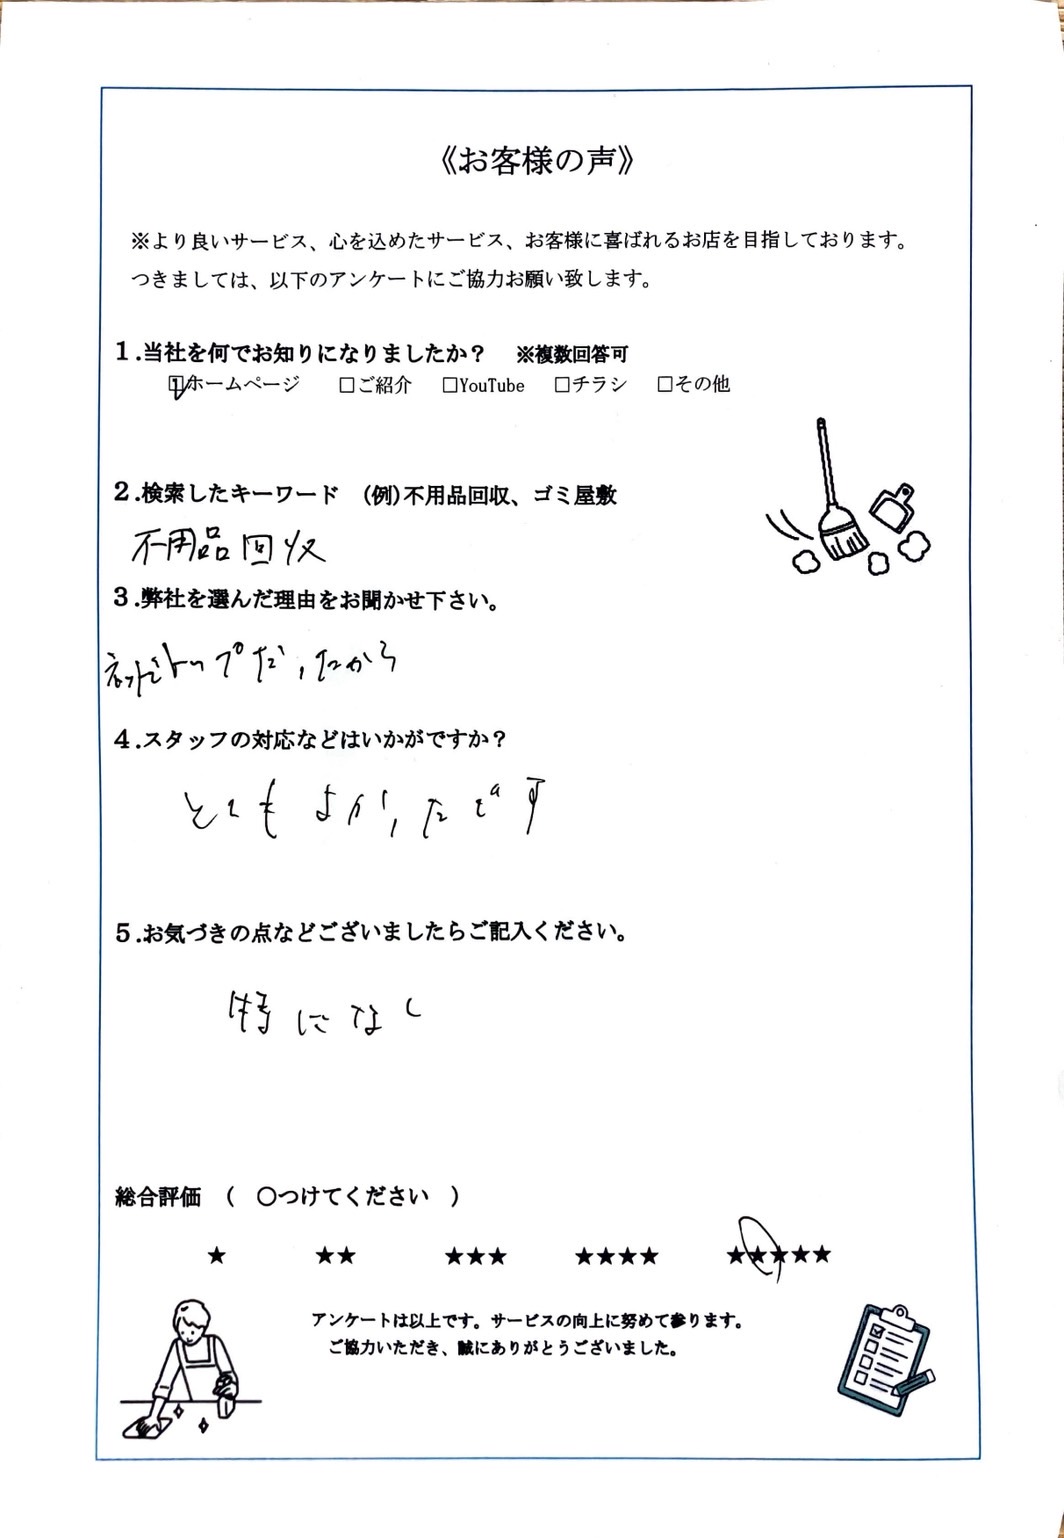 《お客様の声》
※より良いサービス、心を込めたサービス、お客様に喜ばれるお店を目指しております。
つきましては、以下のアンケートにご協力お願い致します。
１.当社を何でお知りになりましたか？　※複数回答可
☑ホームページ　□ご紹介　□YouTube　□チラシ　□その他
２.検索したキーワード　(例)不用品回収、ゴミ屋敷
不用品回収
３.弊社を選んだ理由をお聞かせ下さい。
ネットでトップだったから
４.スタッフの対応などはいかがですか？
とてもよかったです
５.お気づきの点などございましたらご記入ください。
特になし
総合評価　(　〇つけてください　)
★　★★　★★★　★★★★　★★★★★
アンケートは以上です。サービスの向上に努めて参ります。
ご協力いただき、誠にありがとうございました。